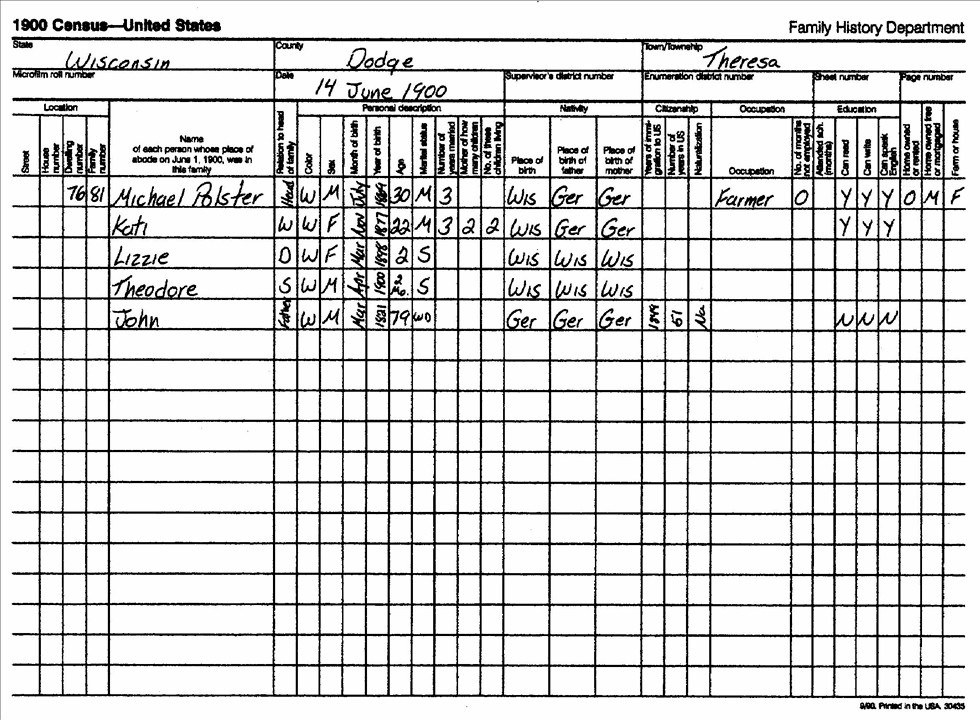 1900 Census—United States Family History Department
State Wisconsin County Dodge Town/Township Theresa
Microfilm roll number Date 14 June 1900 Supervisor's district number Enumeration district number Sheet number Page number
Location Personal description Nativity Citizenship Occupation Education
Street House number Dwelling number Family number Name of each person whose place of abode on June 1, 1900, was in this family Relation to head of family Color Sex Month of birth Year of birth Age Marital status Number of years married Mother of how many children No. of these children living Place of birth Place of birth of father Place of birth of mother Year of immigration to US Number of years in US Naturalization Occupation No. of months not employed Attended sch. (months) Can read Can write Can speak English Home owned or rented Home owned free or mortgaged Farm or house
76 81 Michael Polster Head W M July 1869 30 M 3 Wis Ger Ger Farmer 0 Y Y Y O M F
Kati W W F Nov 1877 22 M 3 2 2 Wis Ger Ger Y Y Y
Lizzie D W F Mar 1898 2 S Wis Wis Wis
Theodore S W M Apr 1900 2 Mo. S Wis Wis Wis
John Father W M Mar 1821 79 WD Ger Ger Ger 1849 51 Na N N N
9/90. Printed in the USA. 30435